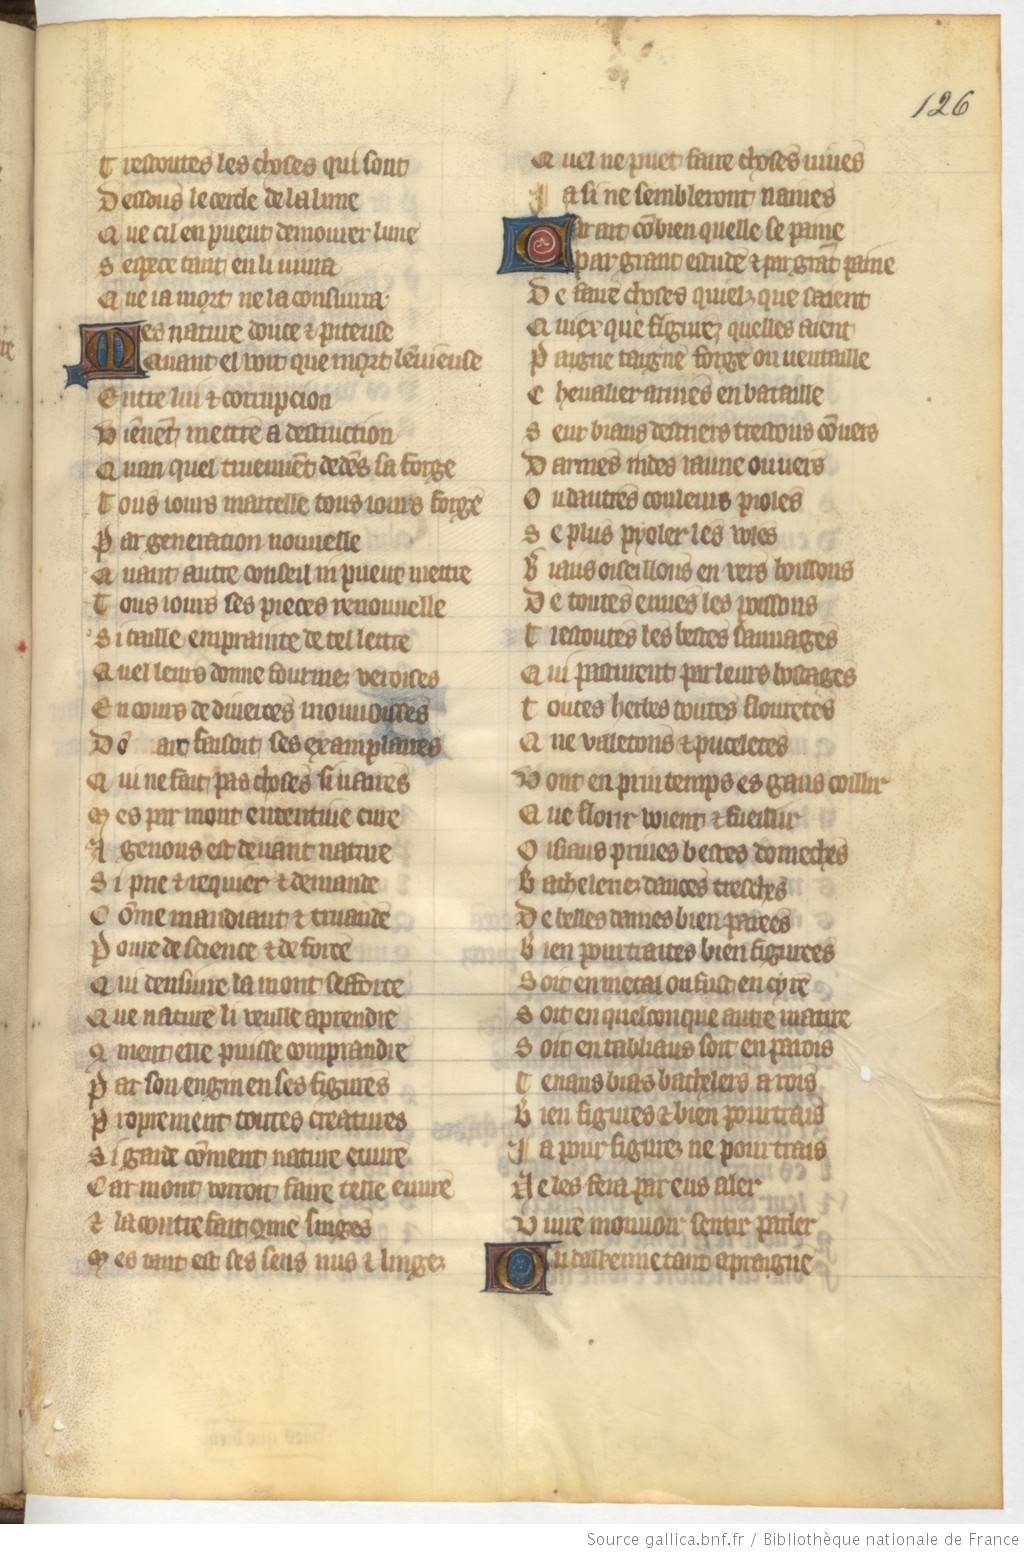 126
Trestoutes les choses qui sont
Dessous le cercle de la lune
Que cil en pueut demourer lune
Sespece tant en li vivra
Que ia mort ne la consiuvra
Mes nature douce et piteuse
Quant el voit que mort lenvieuse
Entre lui et corrupcion
Viēnēt mettre a destruction
Quan quel truevent dedēs sa forge
Tous iours martelle tous iours forge
Par generation nouvelle
Quant autre conseil ni pueut mettre
Tous iours ses pieces renouvelle
Si taille emprainte de tel lettre
Quel leurs donne fourmez veroises
En cours de diverces monnoises
Dō art faisoit ses examplaires
Qui ne fait pas choses si vaires
Mes par mont ententive cure
A genous est devant nature
Si prie et requier et demande
Cōme mandiant et truande
Povre de science et de force
Qui densuire la mont sefforce
Que nature li veulle aprendre
Qment elle puisse comprandre
Par son engin en ses figures
Proprement toutes creatures
Si garde cōment nature euvre
Car mont vorroit faire telle euvre
et la contrefait qme singes
Mes tant est ses sens nus et lingez
Quel ne puet faire choses vives
Ja si ne sembleront naives
Car art cōbien quelle se paine
par grant estude et par grāt paine
De faire choses quielz que saient
Quiex que figurez quelles aient
Paigne taigne forge ou ventaille
Chevalier armes en bataille
Seur biaus destriers trestous cōvers
Darmes indes iaune ou vers
Ou dautres couleurs pioles
Se plus pyoler les voles
Biaus oiseillons en vers boissons
De toutes eaues les poissons
Trestoutes les bestes sauvages
Qui pasturent par leurs boscages
Toutes herbes toutes flouretes
Que valetons et puceletes
Vont en printemps es gaus coillir
Que florir voient et fueillir
Oisiaus prives bestes domeches
Bachelerie dances tresches
De belles dames bien parees
Bien pourtraites bien figurees
Soit en metal ou fust en cyre
Soit en quelconque autre matire
Soit en tabliaus soit en parois
Tenans bias bachelers a rois
Bien figures et bien pourtrais
Ja pour figurez ne pourtrais
Ne les fera par eus aler
Vivre mouvoir sentir parler
Ou dalkenne tant apraigne
Source gallica.bnf.fr / Bibliothèque nationale de France